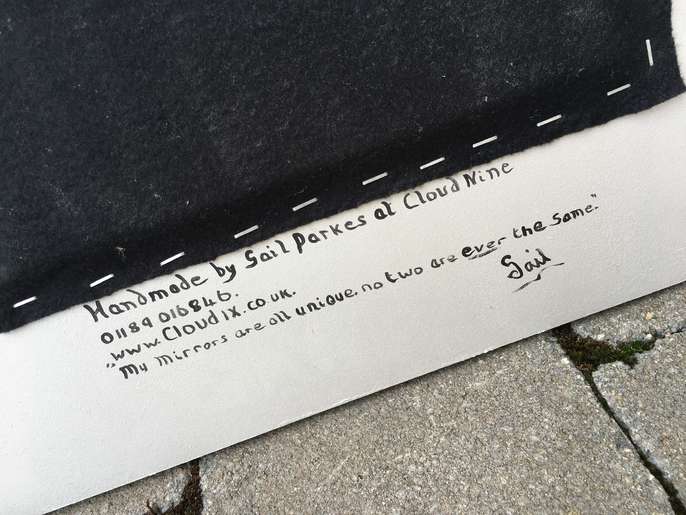 Handmade by Gail Parkes at Cloud Nine
01189 016846.
"www.Cloud1X.co.uk.
"My mirrors are all unique, no two are ever the same."
Gail